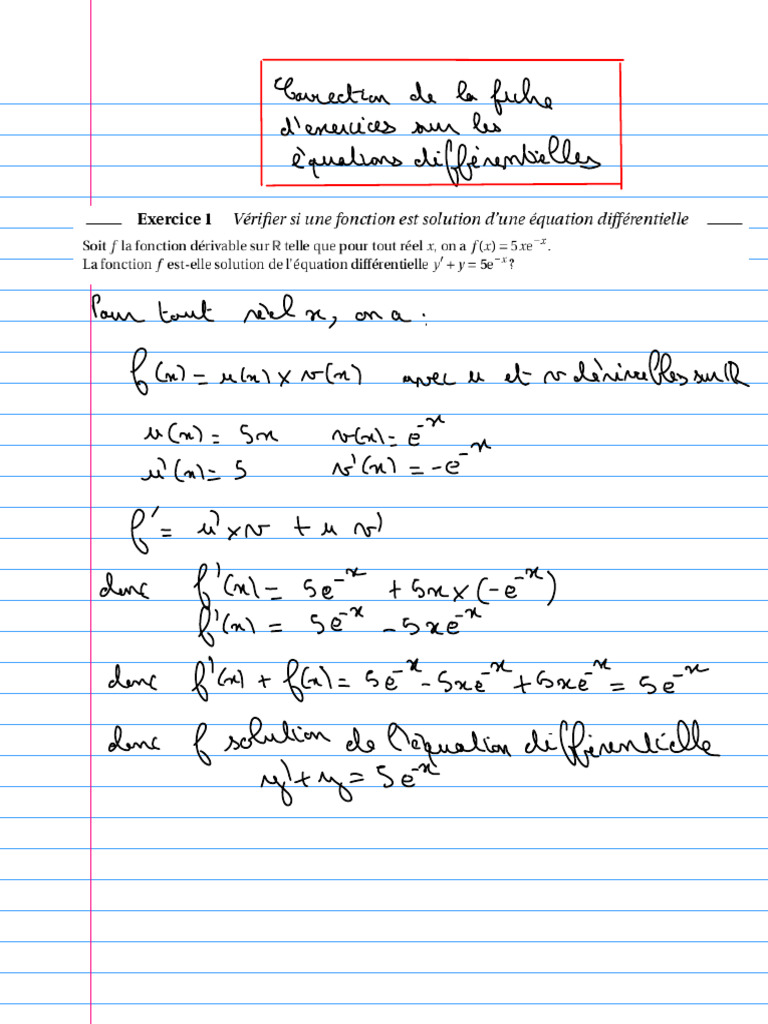 Correction de la fiche
d'exercices sur les
équations différentielles
Exercice 1 Vérifier si une fonction est solution d'une équation différentielle
Soit f la fonction dérivable sur ℝ telle que pour tout réel x, on a f(x) = 5xe⁻ˣ.
La fonction f est-elle solution de l'équation différentielle y′ + y = 5e⁻ˣ ?
Pour tout réel x, on a :
f(x) = u(x) × v(x) avec u et v dérivables sur ℝ
u(x) = 5x v(x) = e⁻ˣ
u'(x) = 5 v'(x) = -e⁻ˣ
f' = u' × v + u v'
donc f'(x) = 5e⁻ˣ + 5x × (-e⁻ˣ)
f'(x) = 5e⁻ˣ - 5xe⁻ˣ
donc f'(x) + f(x) = 5e⁻ˣ - 5xe⁻ˣ + 5xe⁻ˣ = 5e⁻ˣ
donc f solution de l'équation différentielle
y' + y = 5e⁻ˣ